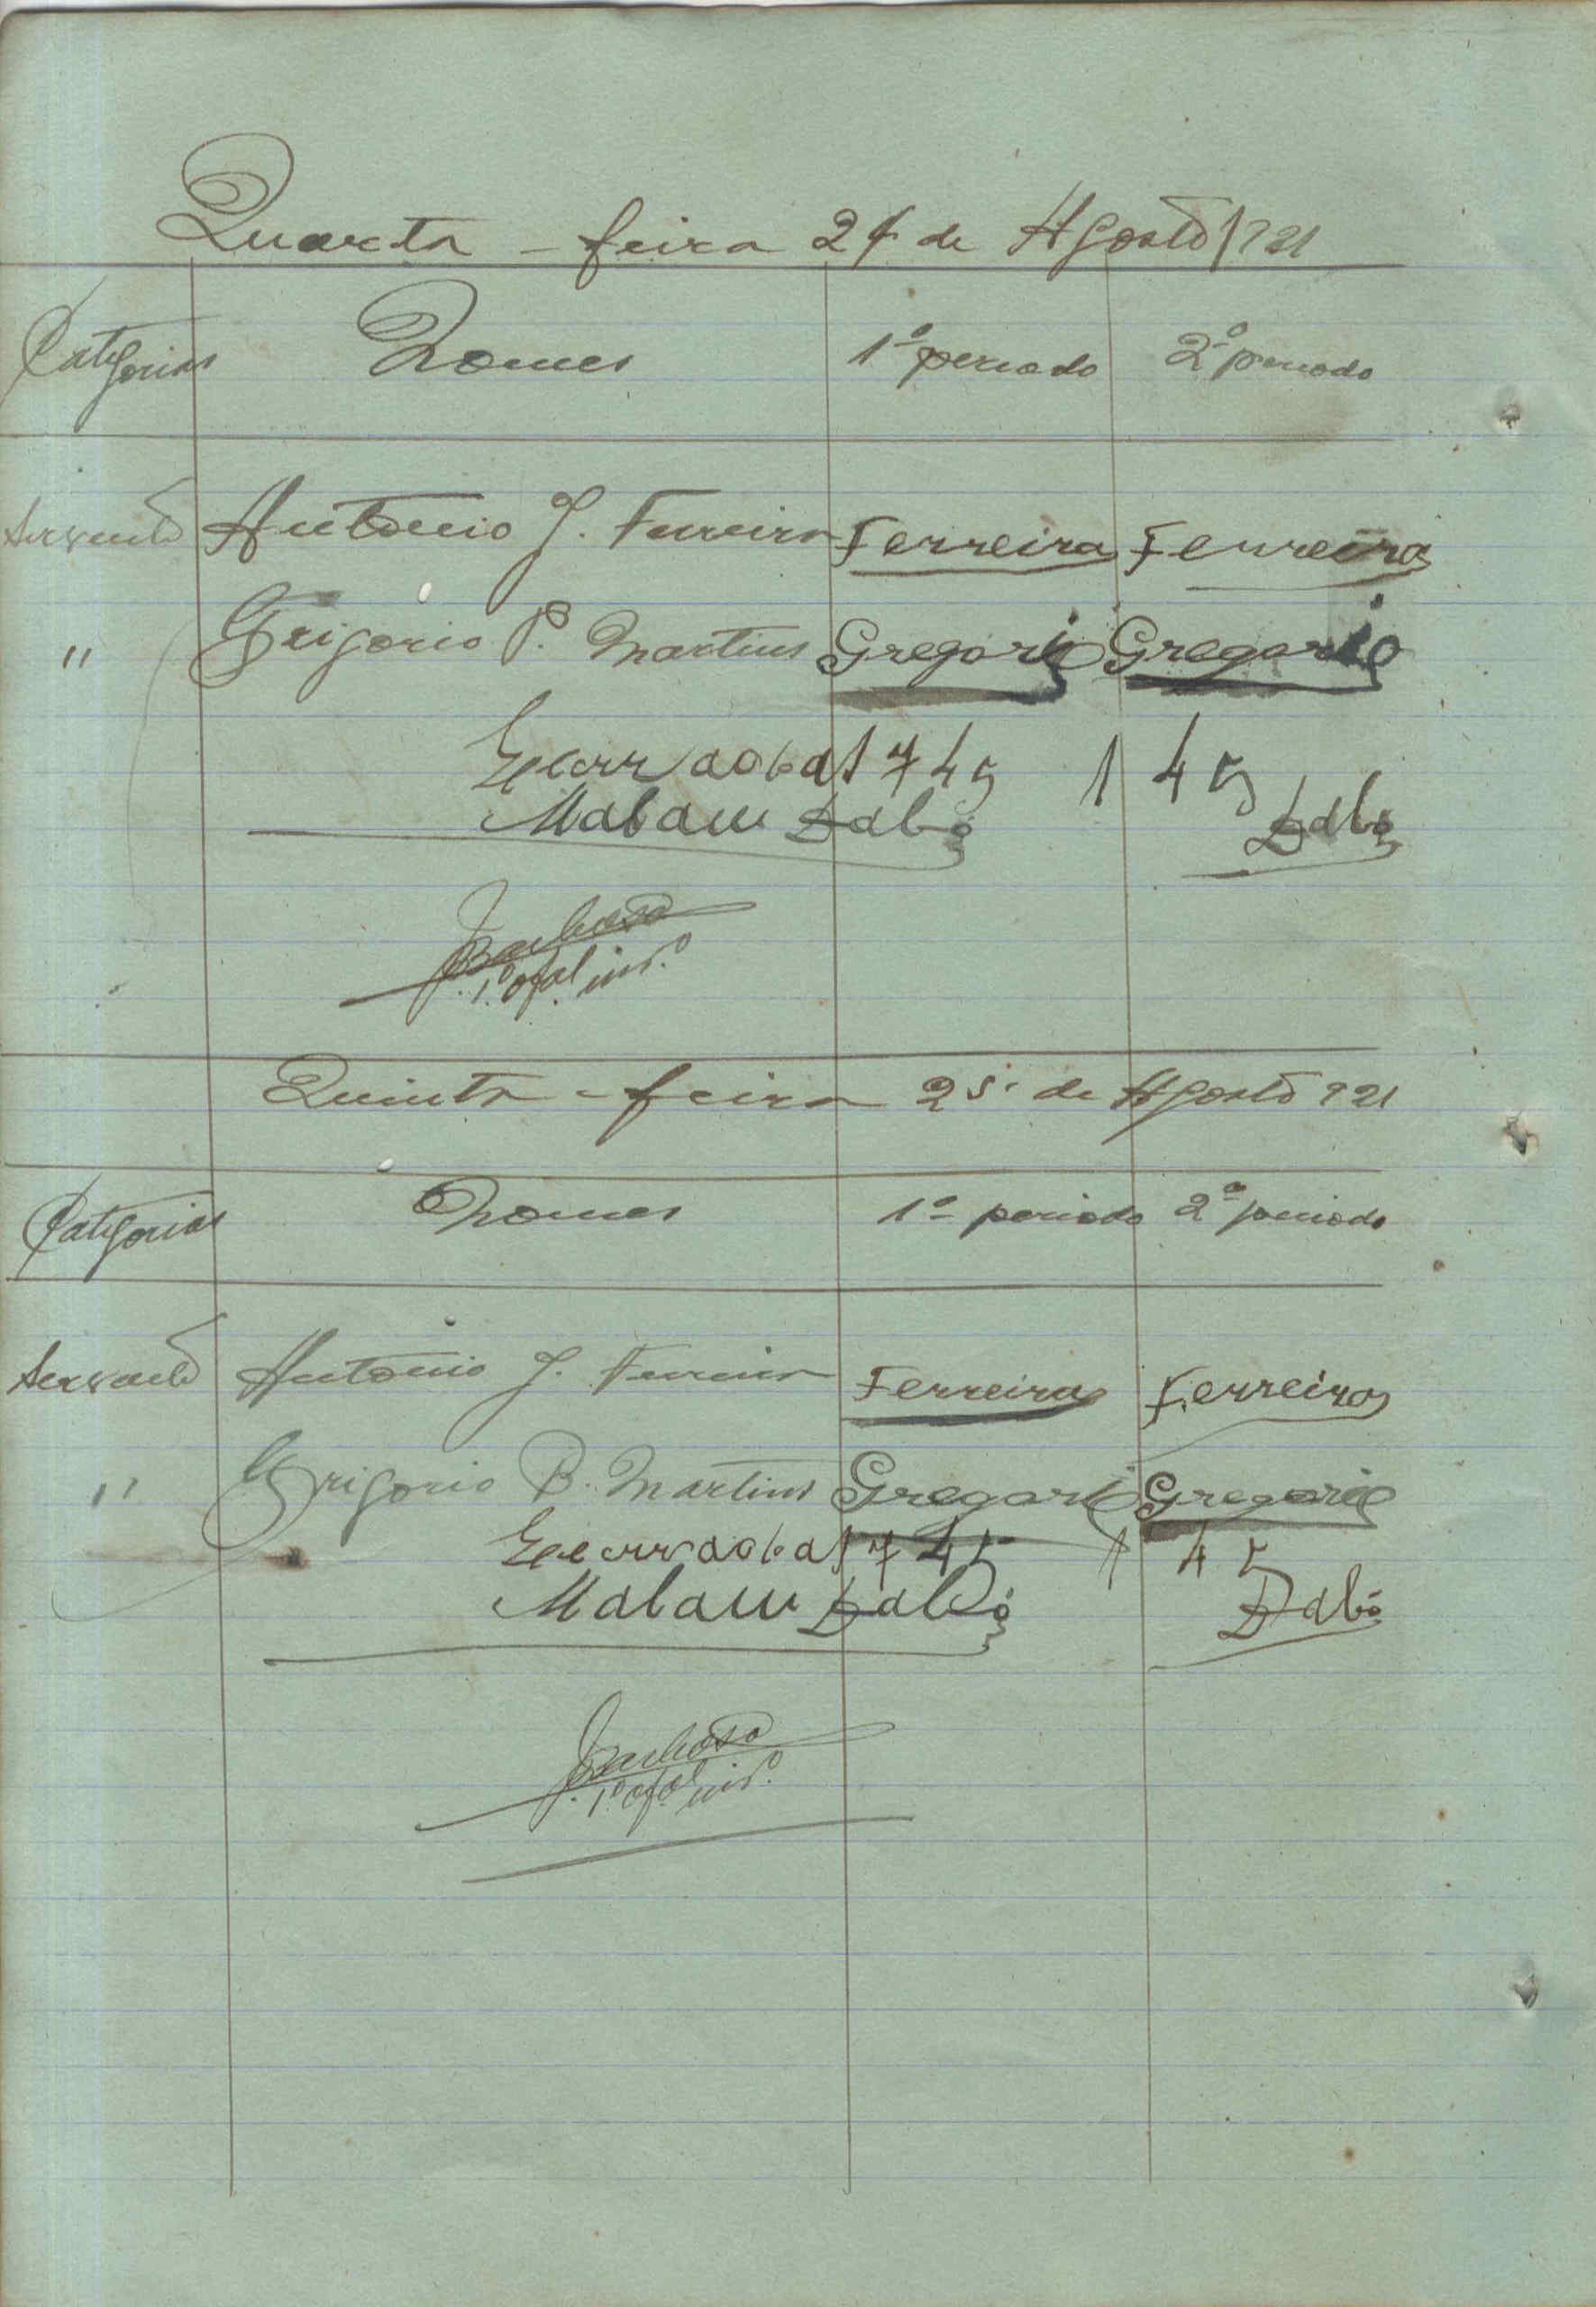 Quarta - feira 24 de Agosto 1921
Categorias Nomes 1º periodo 2º periodo
Servente Antonio J. Ferreira Ferreira Ferreira
" Grigorio P. Martins Gregorio Gregorio
7 45 1 45
Malam Dabó Dabó
Barbosa
1º ofal intº.
Quinta - feira 25 de Agosto 921
Categorias Nomes 1º periodo 2º periodo
Servente Antonio J. Ferreira Ferreira Ferreira
" Grigorio P. Martins Gregorio Gregorio
7 45 1 45
Malam Dabó Dabó
Barbosa
1º ofal intº.